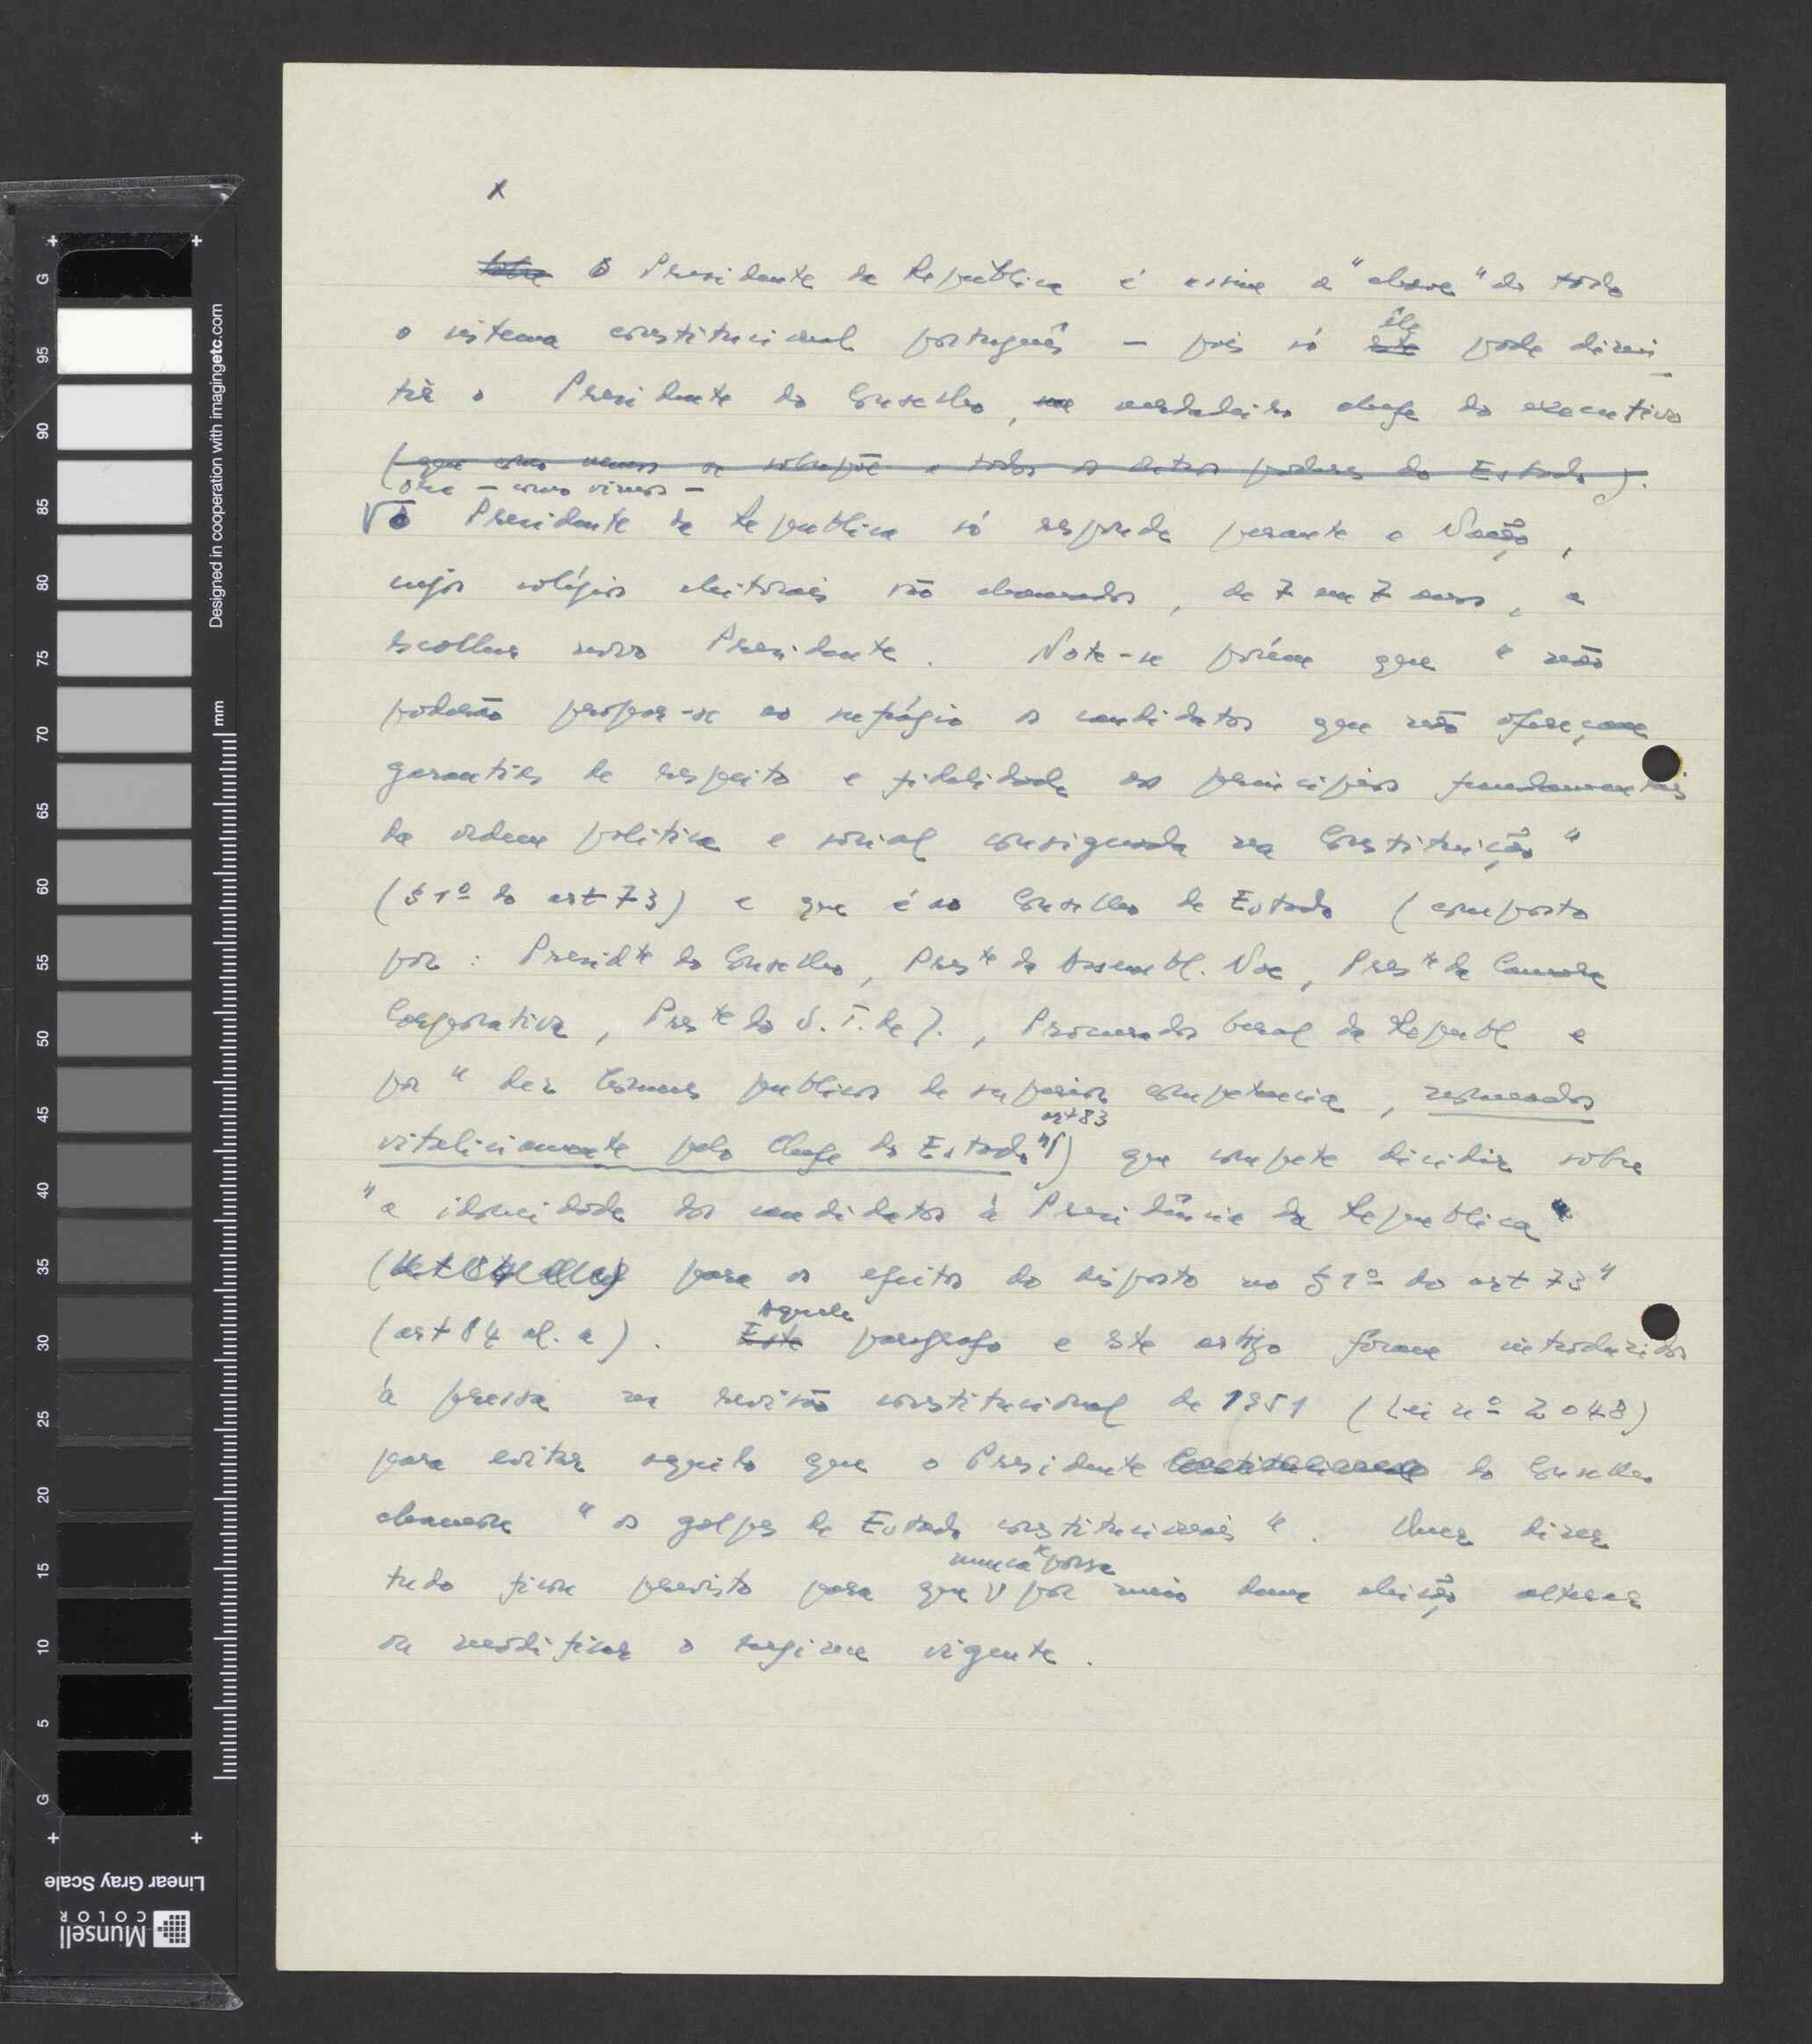 x
Sobre O Presidente da República é assim a "chave" de todo
o sistema constitucional português — pois só este êle pode demi-
tir o Presidente do Conselho, verdadeiro chefe do executivo
(que como vemos se sobrepõe a todos os outros poderes do Estado).
Ora — como vimos —
o Presidente da Republica só responde perante a Nação,
cujos colégios eleitorais são chamados, de 7 em 7 anos, a
escolher novo Presidente. Note-se porém que "não
poderão propor-se ao sufrágio os candidatos que não ofereçam
garantias de respeito e fidelidade aos principios fundamentais
da ordem politica e social consignada na Constituição"
(§ 1º do art 73) e que é ao Conselho de Estado (composto
por: Presidte do Conselho, Preste da Assembl. Nac, Preste da Camara
Corporativa, Preste do S.T. de J., Procurador Geral da Republ e
por "dez homens publicos de superior competencia, nomeados
art 83
vitaliciamente pelo Chefe do Estado") que compete decidir sobre
"a idoneidade dos candidatos à Presidência da Republica
( para os efeitos do disposto no § 1º do art 73"
(art 84 al. a). Este Aquele paragrafo e este artigo foram introduzidos
à pressa na revisão constitucional de 1951 (Lei nº 2048)
para evitar aquilo que o Presidente do Conselho
chamara "os golpes de Estado constitucionais". Quer dizer
nunca se possa
tudo ficou previsto para que por meio duma eleição alterar
ou modificar o regime vigente.
G 95 90 85 80 75 70 65 60 55 50 45 40 35 30 25 20 15 10 5 G
mm
Designed in cooperation with imagingetc.com
Linear Gray Scale
Munsell
COLOR